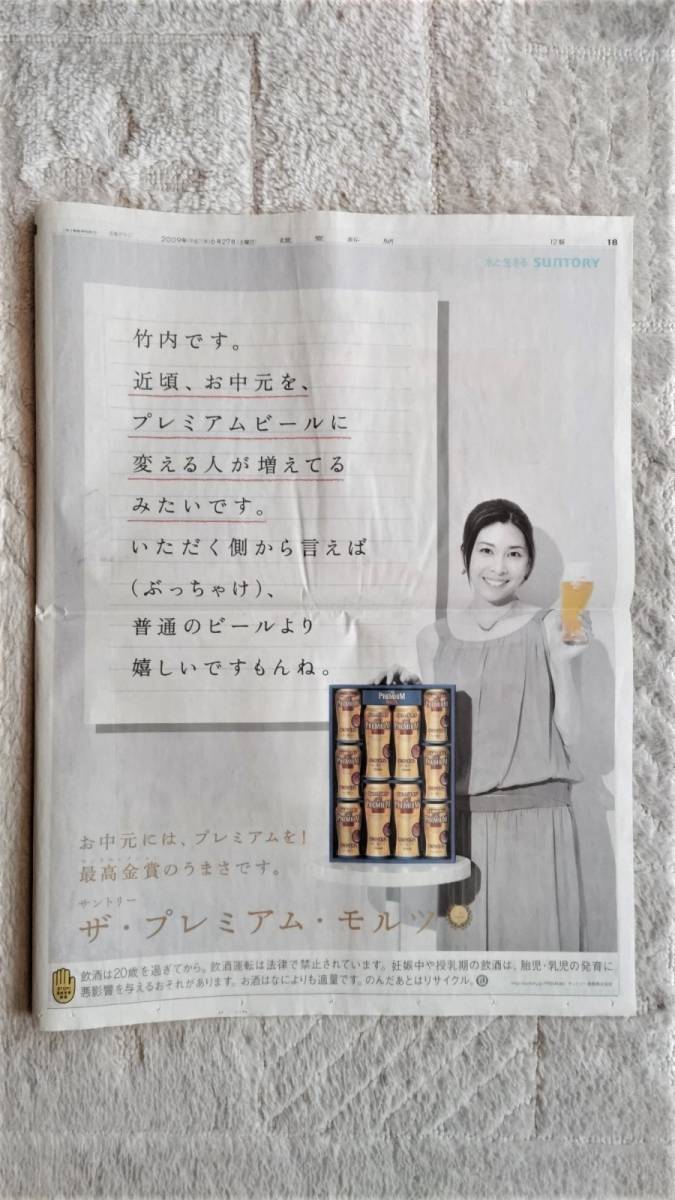 2009年(平成21年)6月27日(土曜日)
讀賣新聞
12版
18
水と生きる SUNTORY
竹内です。
近頃、お中元を、
プレミアムビールに
変える人が増えてる
みたいです。
いただく側から言えば
(ぶっちゃけ)、
普通のビールより
嬉しいですもんね。
PREMIUM
お中元には、プレミアムを!
最高金賞のうまさです。
サントリー
ザ・プレミアム・モルツ
飲酒は20歳を過ぎてから。飲酒運転は法律で禁止されています。妊娠中や授乳期の飲酒は、胎児・乳児の発育に
悪影響を与えるおそれがあります。お酒はなによりも適量です。のんだあとはリサイクル。